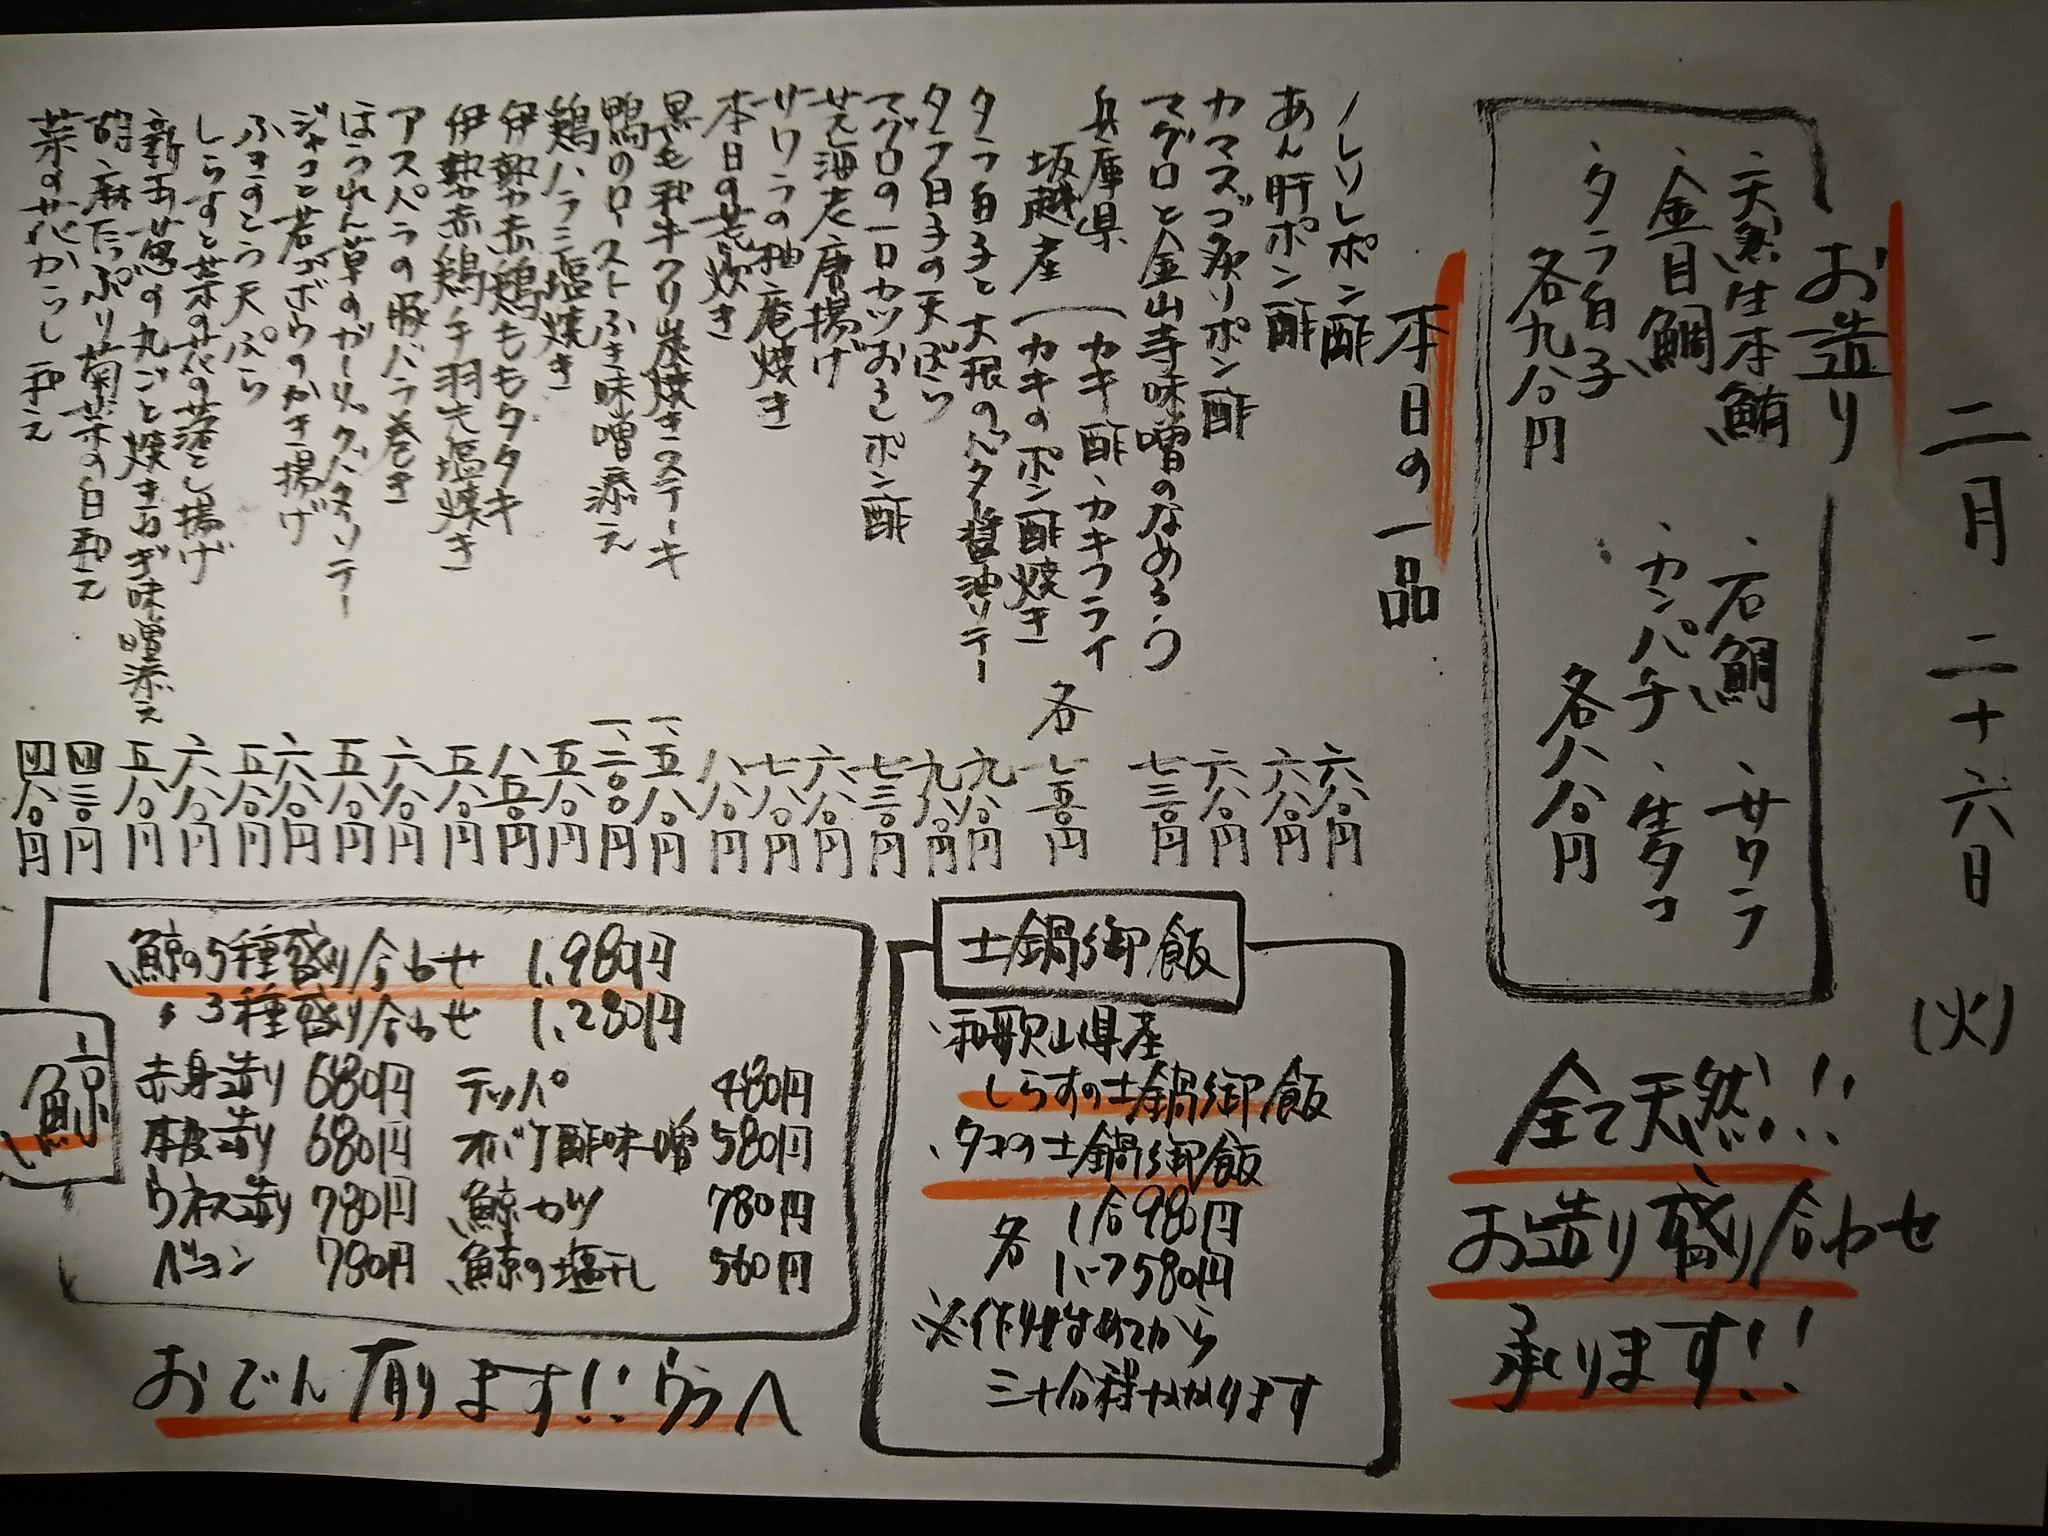 二月二十六日(火)
お造り
・天然生本鮪
・金目鯛
・タラ白子
各九八〇円
・石鯛
・サワラ
・カンパチ
・生タコ
各八八〇円
全て天然!!
お造り盛り合わせ
承ります!!
本日の一品
ノレソレポン酢 六八〇円
あん肝ポン酢 六八〇円
カマスゴ炙りポン酢 六八〇円
マグロと金山寺味噌のなめろう 七三〇円
兵庫県
坂越産
(カキ酢・カキフライ
(カキのポン酢焼き
各七五〇円
タラ白子と大根のバター醤油ソテー 九八〇円
タラ白子の天ぷら 九八〇円
マグロの一口カツおろしポン酢 七三〇円
芝海老唐揚げ 六八〇円
サワラの柚庵焼き 七八〇円
本日の荒炊き 八八〇円
黒毛和牛クリ炭焼きステーキ 一、五八〇円
鴨のローストふき味噌添え 一、二〇〇円
鶏ハラミ塩焼き 五八〇円
伊勢赤鶏ももタタキ 八五〇円
伊勢赤鶏手羽先塩焼き 五八〇円
アスパラの豚バラ巻き 六八〇円
ほうれん草のガーリックバターソテー 五八〇円
ジャコと若ゴボウのかき揚げ 六八〇円
ふきのとう天ぷら 五八〇円
しらすと菜の花の落とし揚げ 六八〇円
新玉葱の丸ごと焼きねぎ味噌添え 五八〇円
胡麻たっぷり菊菜の白和え 四三〇円
菜の花からし和え 四八〇円
土鍋御飯
・和歌山県産
しらすの土鍋御飯
・タコの土鍋御飯
各
1合980円
1ハーフ580円
※作り始めてから
三十分程かかります
鯨
鯨の5種盛り合わせ 1,980円
〃 3種盛り合わせ 1,280円
赤身造り 680円 テッパ 480円
本皮造り 680円 オバケ酢味噌 580円
ウネス造り 780円 鯨カツ 780円
ベーコン 780円 鯨の塩干し 560円
おでん有ります!!ウラへ